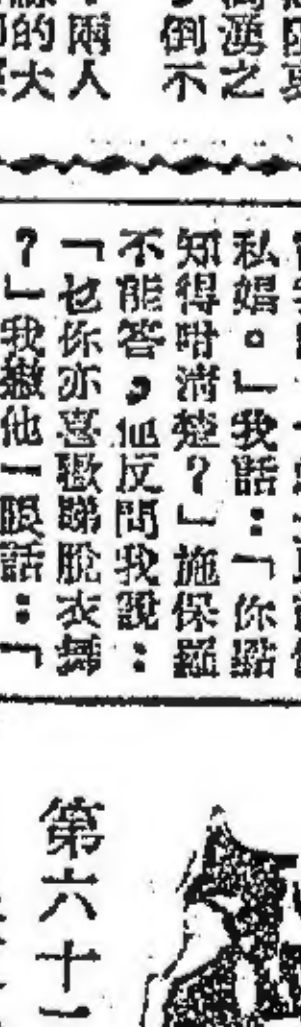 湧之
倒不
兩人
的大
私娼。」我話:「你點
知得咁清楚?」施保羅
不能答,他反問我說:
「乜你亦喜歡睇脫衣舞
?」我撇他一眼話:「
第六十一